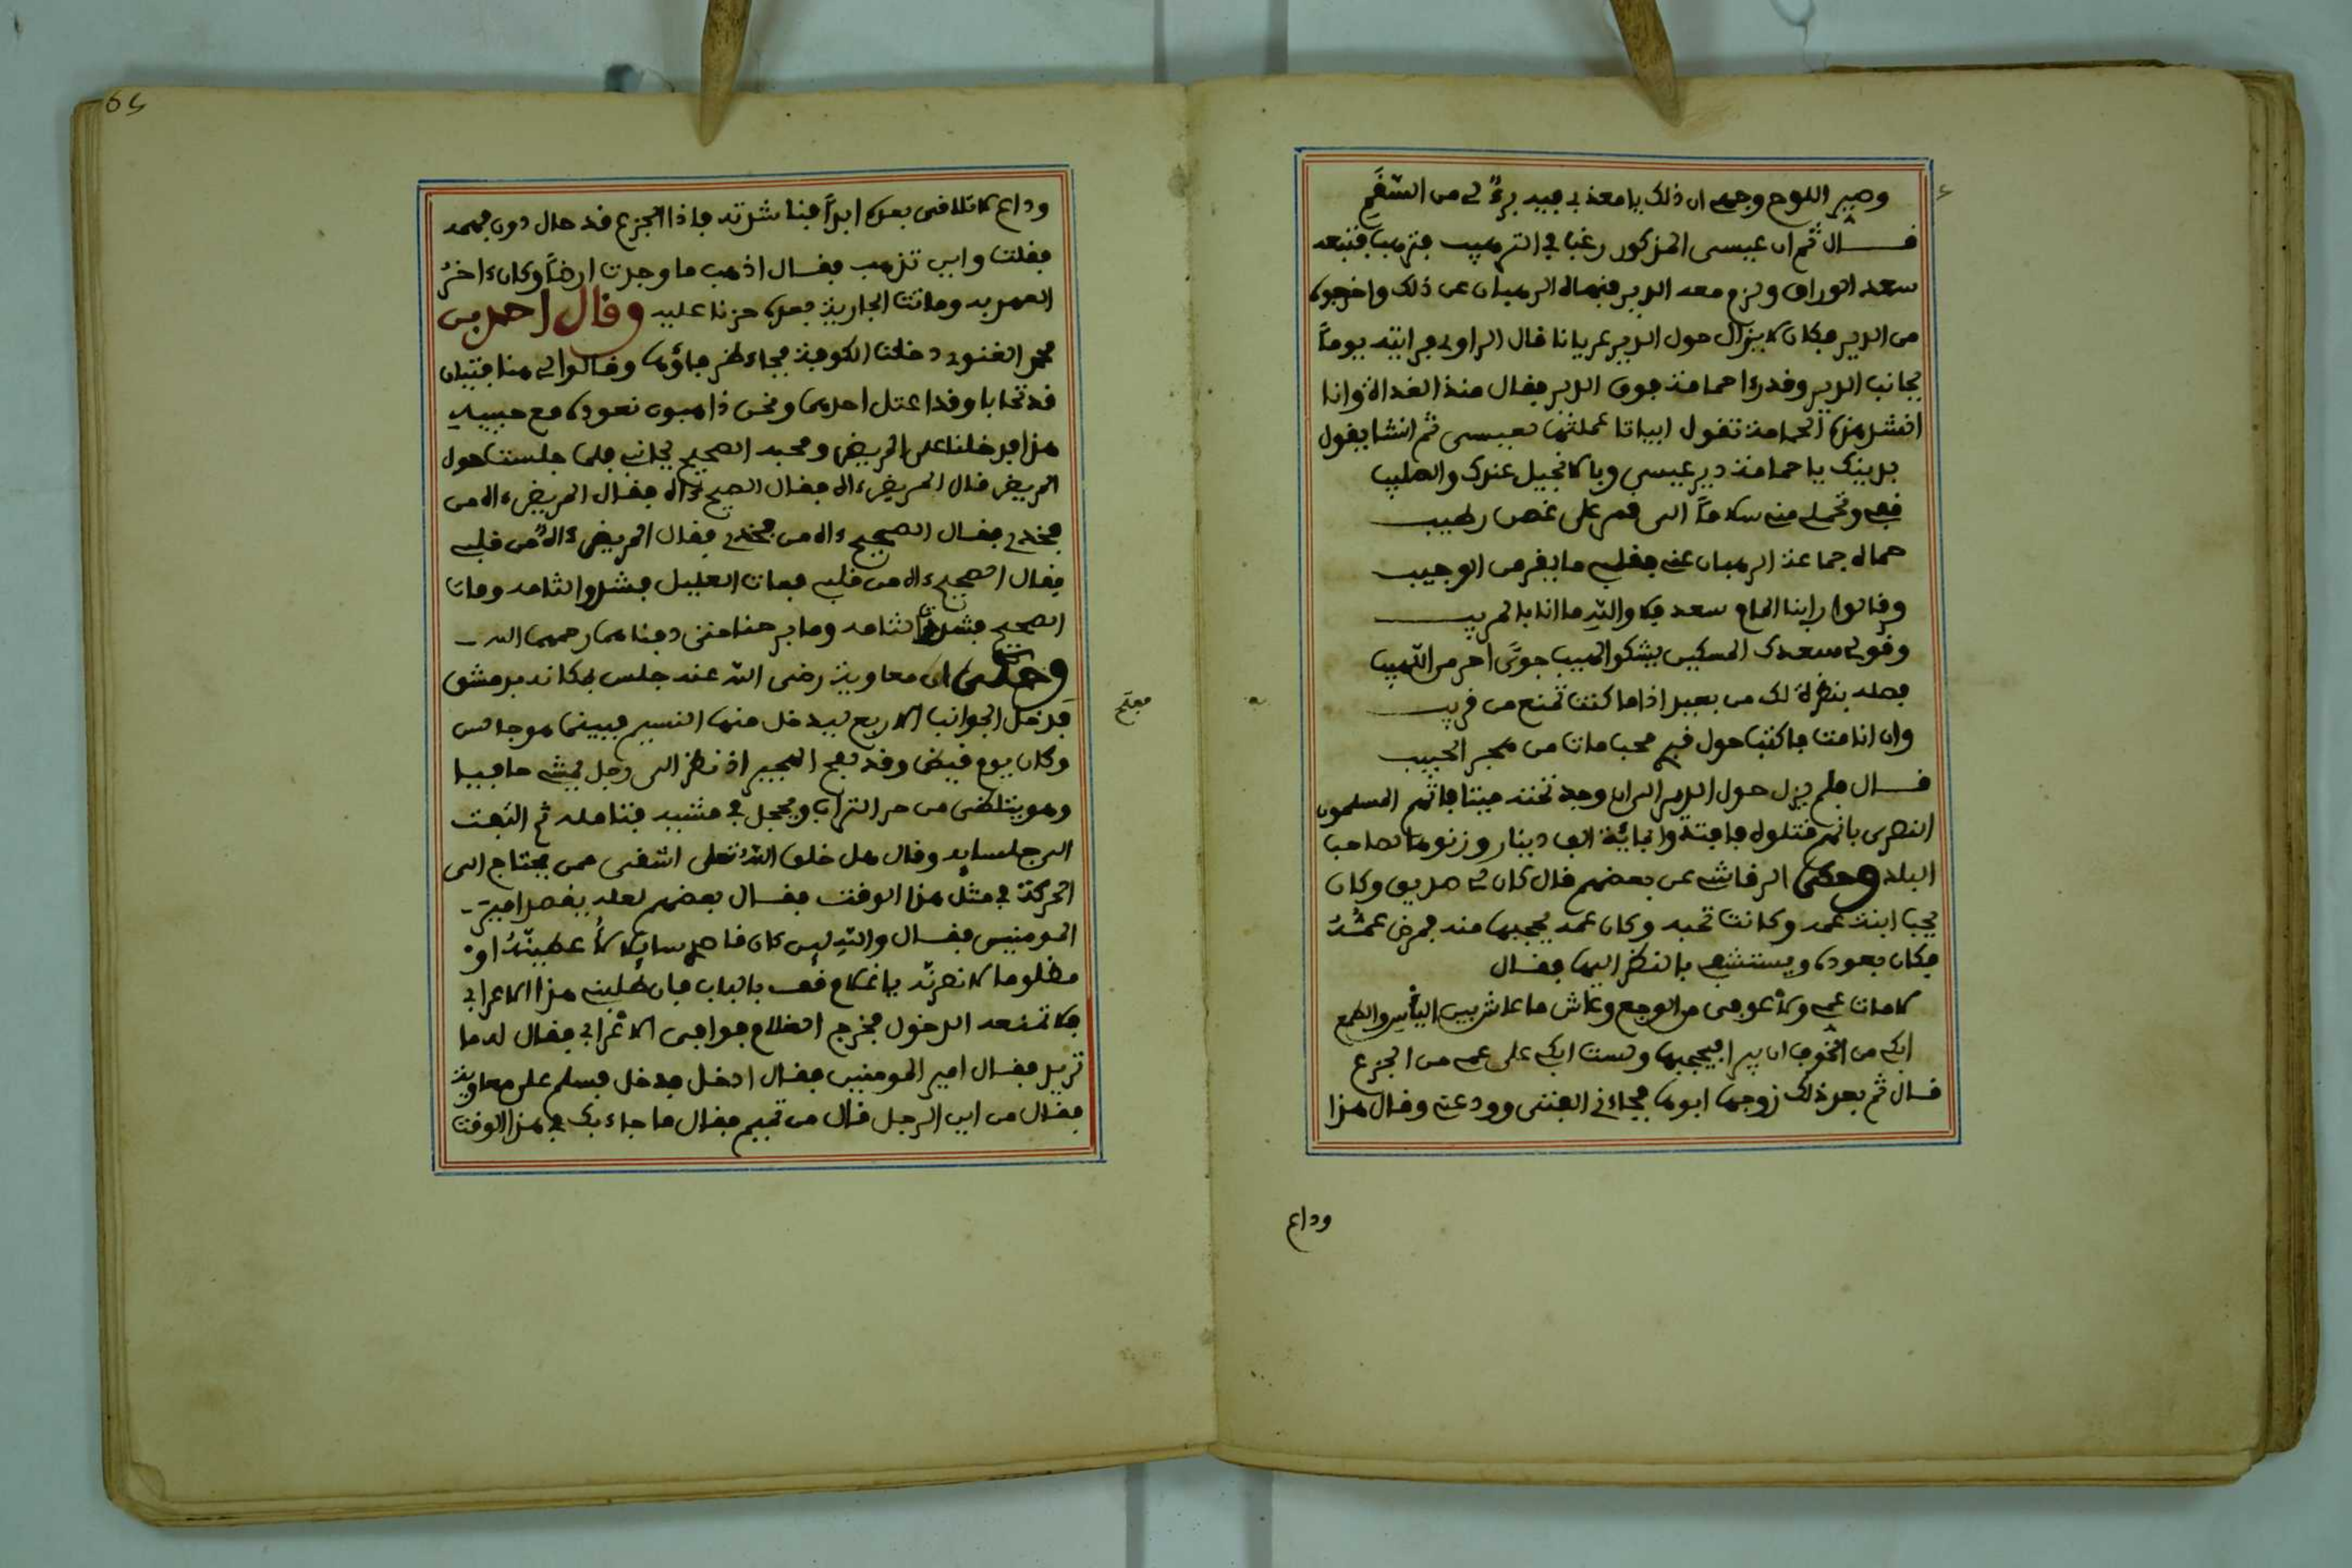 وصير اللوح وجهي ان ذلك يا معذبي فيه برءٌ لي من السقم
قال ثم ان عيسى المذكور رغب في الترهيب فترهب فتبعه
سعد الوراق ولزم معه الدير فنهاه الرهبان عن ذلك واخرجوه
من الدير فكان لا يزال حول الدير عريانا قال الراوي فرايته يوماً
بجانب الدير وقد رءا حمامة فوق الدير فقال منذ الغداة وانا
انشد هذه الحمامة تقول ابياتا عملتها لعيسى ثم انشا يقول
بدينك يا حمامة دير عيسى وبالانجيل عندك والصليب
قفي وتحملي مني سلاماً الى قمر على غصن رطيب
حماه جماعة الرهبان عني فقلبي ما يقر من الوجيب
وقالوا رابنا المام سعد فلا والله ما انا بالمريب
وقولي سعدك المسكين يشكو لهيب جوًى احر من اللهيب
فصله بنظرة لك من بعيد اذا ما كنت تمنع من قريب
وان انا مت فاكتب حول قبري محب مات من هجر الحبيب
قال فلم يزل حول الدير الى ان وجد تحته ميتا فاتهم المسلمون
النصرى بانهم قتلوه فافتدوا بماية الف دينار وزنوها لصاحب
البلد وحكى الرقاشي عن بعضهم قال كان لي صديق وكان
يحب ابنة عمه وكانت تحبه وكان عمه يحجبها منه فمرض عمُّهُ
فكان يعوده ويستشفي بالنظر اليها فقال
لا مات عمي ولا عوفي من الوجع وعاش ما عاش بين اليأس والطمع
ابكي من الخوف ان يبرا فيحجبها ولست ابكي على عمي من الجزع
قال ثم بعد ذلك زوجها ابوها فجاءني الفتى وودعني وقال هذا
وداع
65
وداع لا تلاقى بعده ابداً فناشدته فاذا الجزع قد حال دون فهمه
فقلت واين تذهب فقال اذهب ما وجدت ارضاً وكان ءاخرُ
العهد به وماتت الجارية بعده حزنا عليه وقال احمد بن
محمد الغنوي دخلت الكوفة فجاء وقالوا لي هنا فتيان
قد تحابا وقد اعتل احدهما ونحن ذاهبون نعوده مع حبيبه
هذا فدخلنا على المريض ومحبه الصحيح بجانبه فلما جلست حول
المريض قال المريض ءاه فقال الصحيح ءاه فقال المريض ءاه من
فخذي فقال الصحيح ءاه من فخذي فقال المريض ءاه من قلبي
فقال الصحيح ءاه من قلبي فمات العليل فشدوا لثامه ومات
الصحيح فشدوا لثامه وما برحنا حتى دفناهما رحمهما الله
وحكى ان معاوية رضى الله عنه جلس بمكانه بدمشق
الجوانب الاربع ليدخل منها النسيم فبينما هو جالس
وكان يوم قيض وقد الهجير اذ نظر الى رجل يمشي حافيا
وهو يتلضى من حر التراب ويحجل في مشيه فتامله ثم التفت
الى جلسايه وقال هل خلق الله تعلى اشقى ممن يحتاج الى
الحركة في مثل هذا الوقت فقال بعضهم لعله يقصد امير
المومنين فقال والله ليس كان قاصدي سايلا لأعطينّهُ او
مظلوما لانصرنّه يا غلام قف بالباب فان طلبني هذا الاعرابي
فلا تمنعه الدخول فخرج الغلام فوافى الاعرابي فقال له ما
تريد فقال امير المومنين فقال ادخل فدخل فسلم على معاوية
فقال من اين الرجل قال من تميم فقال ما جاء بك في هذا الوقت